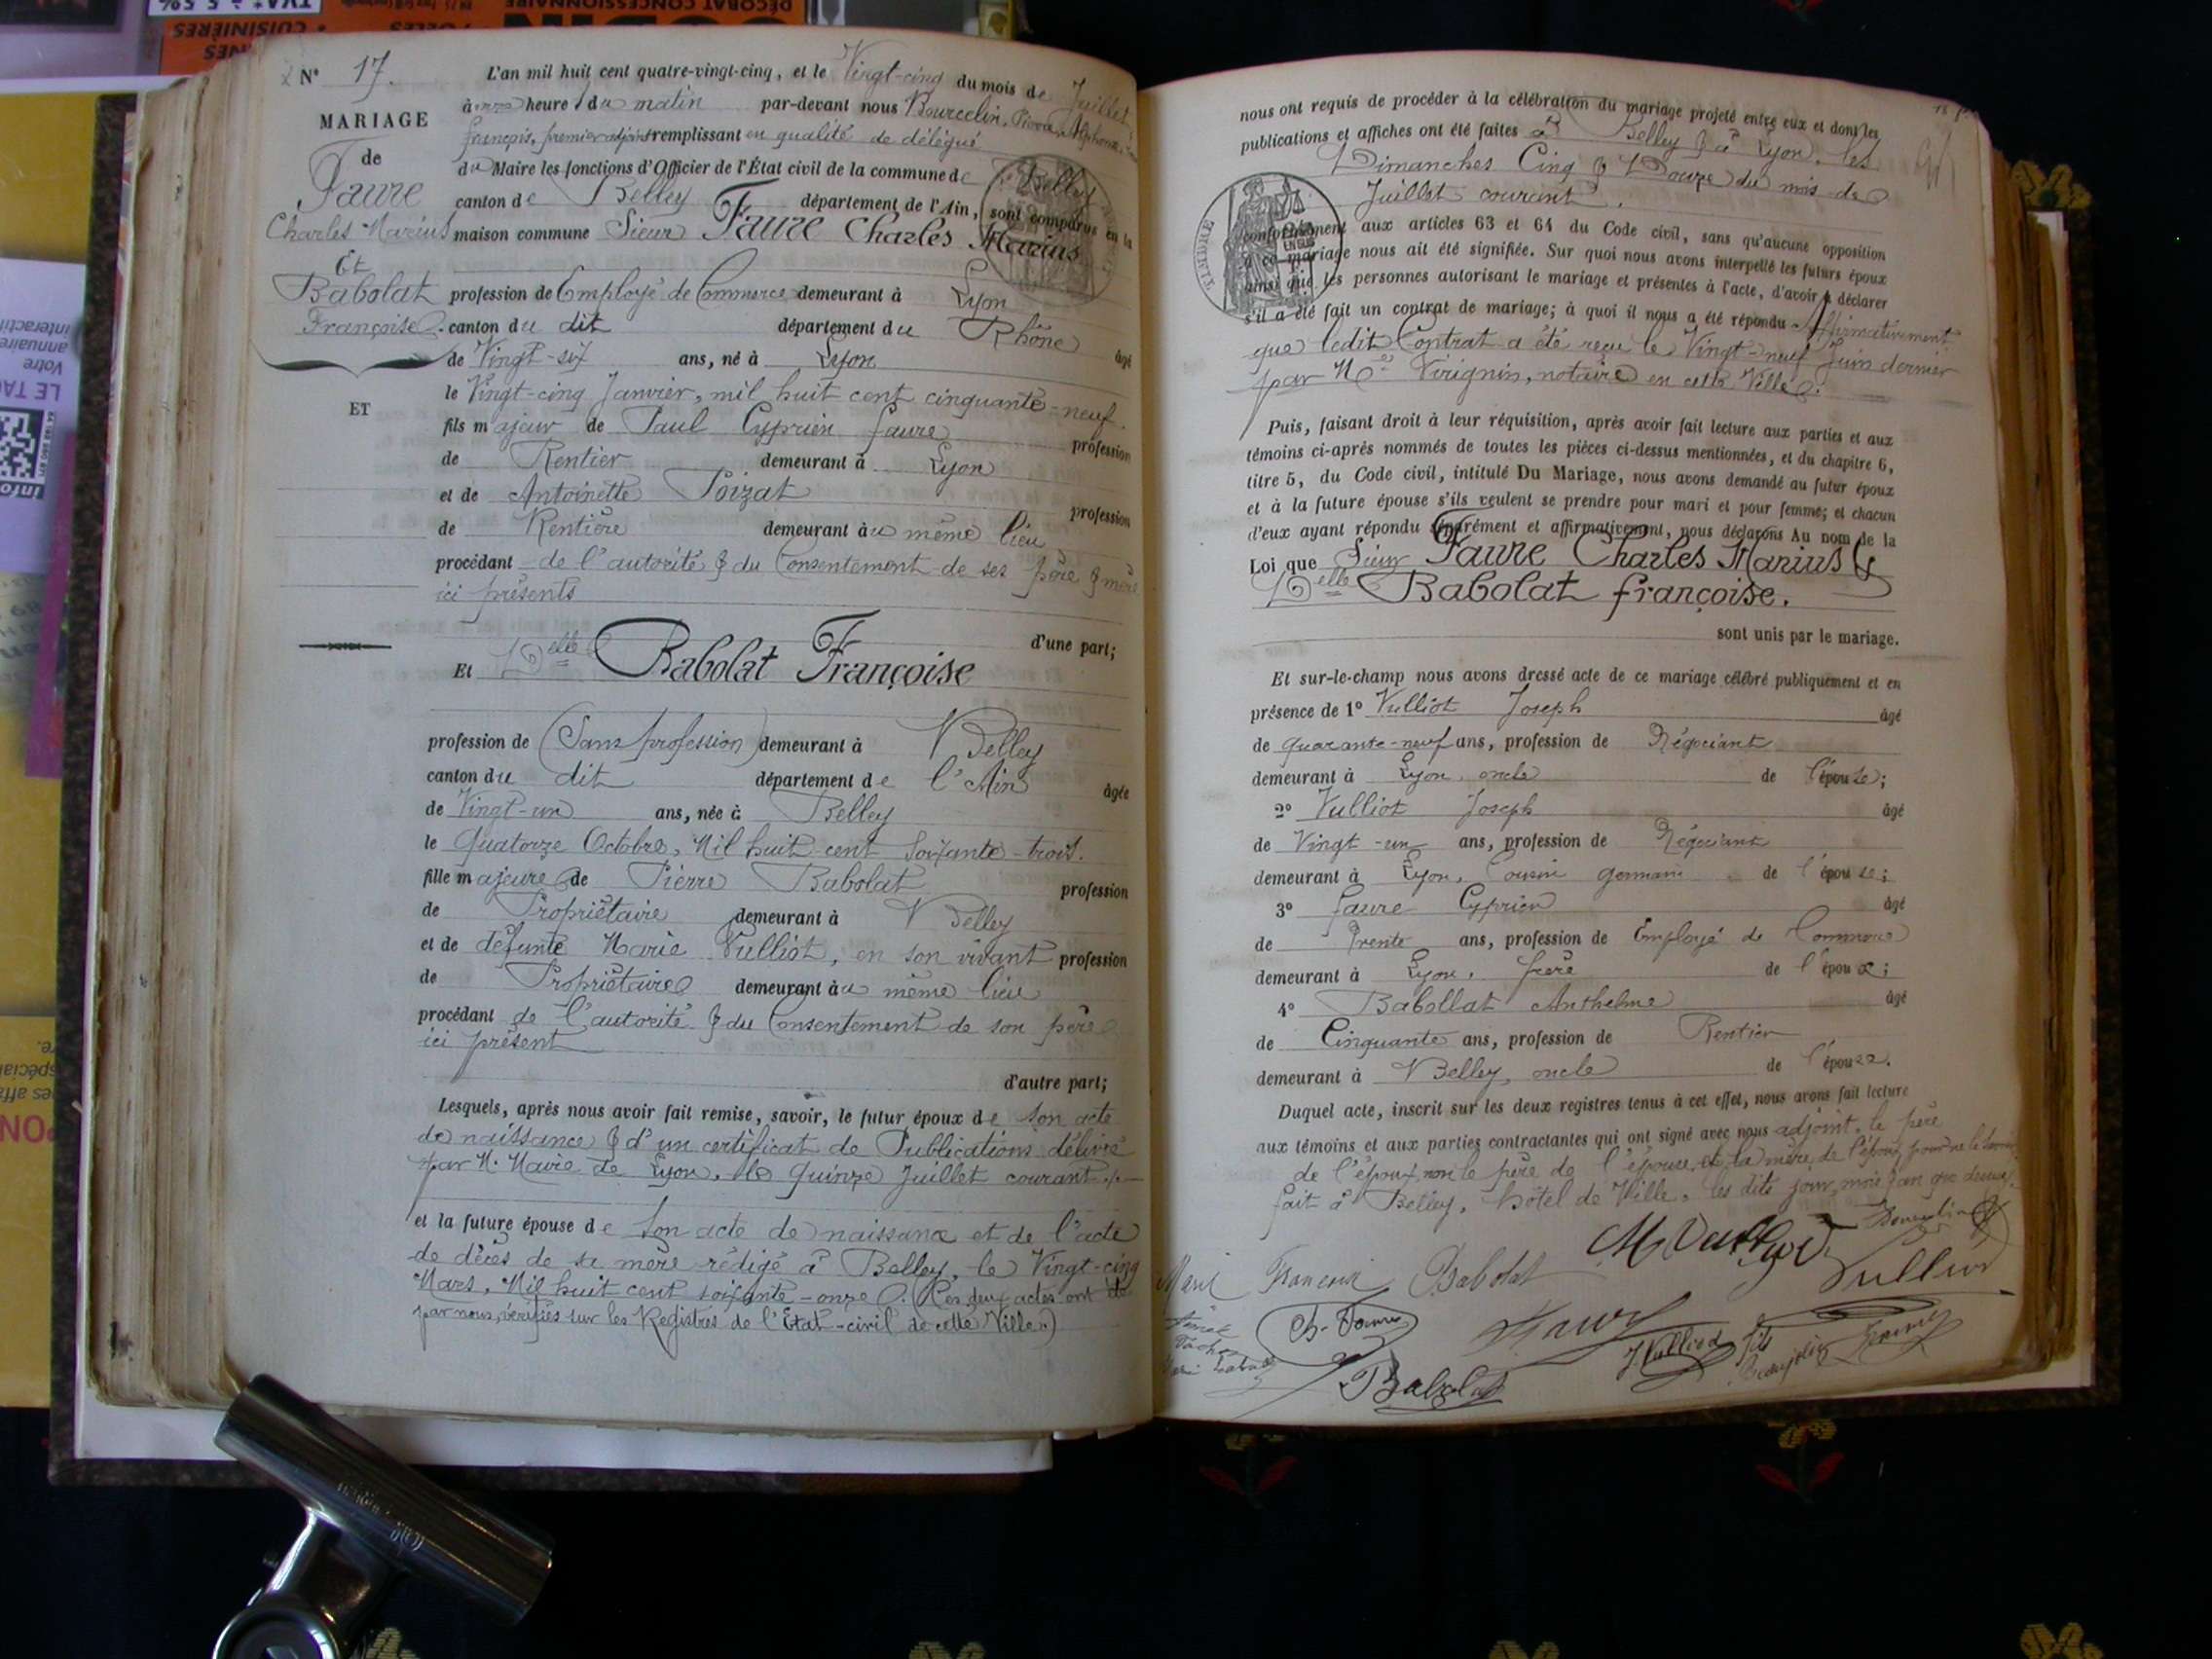 N° 17.
MARIAGE
de
Faure
Charles Marius
Et
Babolat
Françoise.
ET
L'an mil huit cent quatre-vingt-cinq, et le Vingt-cinq du mois de Juillet
à onze heures du matin par-devant nous Bourcelin, Pierre, Alphonse,
françois, premier adjoint remplissant en qualité de délégué
du Maire les fonctions d'Officier de l'État civil de la commune de Belley
canton de Belley département de l'Ain, sont comparus en la
maison commune Sieur Faure Charles Marius
profession de Employé de Commerce demeurant à Lyon
canton du dit département du Rhône âgé
de Vingt-six ans, né à Lyon
le Vingt-cinq Janvier, mil huit cent cinquante-neuf.
fils majeur de Paul Cyprien faure profession
de Rentier demeurant à Lyon
et de Antoinette Poizat profession
de Rentière demeurant au même lieu
procédant de l'autorité & du Consentement de ses père & mère
ici présents
d'une part;
Et Delle Babolat Françoise
profession de (Sans profession) demeurant à Belley
canton du dit département de l'Ain âgée
de Vingt-un ans, née à Belley
le quatorze Octobre, Mil huit cent soixante-trois.
fille majeure de Pierre Babolat profession
de Propriétaire demeurant à Belley
et de défunte Marie Vulliot, en son vivant profession
de Propriétaire demeurant au même lieu
procédant de l'autorité & du Consentement de son père
ici présent
d'autre part;
Lesquels, après nous avoir fait remise, savoir, le futur époux de son acte
de naissance & d'un certificat de Publications délivré
par M. Mavie de Lyon, le quinze Juillet courant.
et la future épouse de son acte de naissance et de l'acte
de décès de sa mère rédigé à Belley, le Vingt-cinq
Mars, Mil huit cent soixante-onze. (Ces deux actes ont été
par nous, vérifiés sur les Registres de l'Etat-civil de cette Ville.)
nous ont requis de procéder à la célébration du mariage projeté entre eux et dont les
publications et affiches ont été faites à Belley & à Lyon, les
Dimanches Cinq & Douze du mois de
Juillet courant.
TIMBRE
conformément aux articles 63 et 64 du Code civil, sans qu'aucune opposition
à ce mariage nous ait été signifiée. Sur quoi nous avons interpellé les futurs époux
ainsi que les personnes autorisant le mariage et présentes à l'acte, d'avoir à déclarer
s'il a été fait un contrat de mariage; à quoi il nous a été répondu Affirmativement
que ledit Contrat a été reçu le Vingt-neuf Juin dernier
par Me Virignin, notaire en cette Ville.
Puis, faisant droit à leur réquisition, après avoir fait lecture aux parties et aux
témoins ci-après nommés de toutes les pièces ci-dessus mentionnées, et du chapitre 6,
titre 5, du Code civil, intitulé Du Mariage, nous avons demandé au futur époux
et à la future épouse s'ils veulent se prendre pour mari et pour femme; et chacun
d'eux ayant répondu séparément et affirmativement, nous déclarons Au nom de la
Loi que Sieur Faure Charles Marius &
Delle Babolat françoise.
sont unis par le mariage.
Et sur-le-champ nous avons dressé acte de ce mariage célébré publiquement et en
présence de 1° Vulliot Joseph âgé
de quarante-neuf ans, profession de Négociant
demeurant à Lyon, oncle de l'épouse;
2° Vulliot Joseph âgé
de Vingt-un ans, profession de Négociant
demeurant à Lyon, Cousin germain de l'épouse;
3° faure Cyprien âgé
de Trente ans, profession de Employé de Commerce
demeurant à Lyon, frère de l'époux;
4° Babollat Anthelme âgé
de Cinquante ans, profession de Rentier
demeurant à Belley, oncle de l'épouse.
Duquel acte, inscrit sur les deux registres tenus à cet effet, nous avons fait lecture
aux témoins et aux parties contractantes qui ont signé avec nous adjoint, le père
de l'époux, non le père de l'épouse, et la mère de l'époux pour ne le savoir
fait à Belley, hôtel de Ville, les dits jour, mois & an que dessus.
Babolat
Ch. Faure
J. Vulliod fils
Babolat